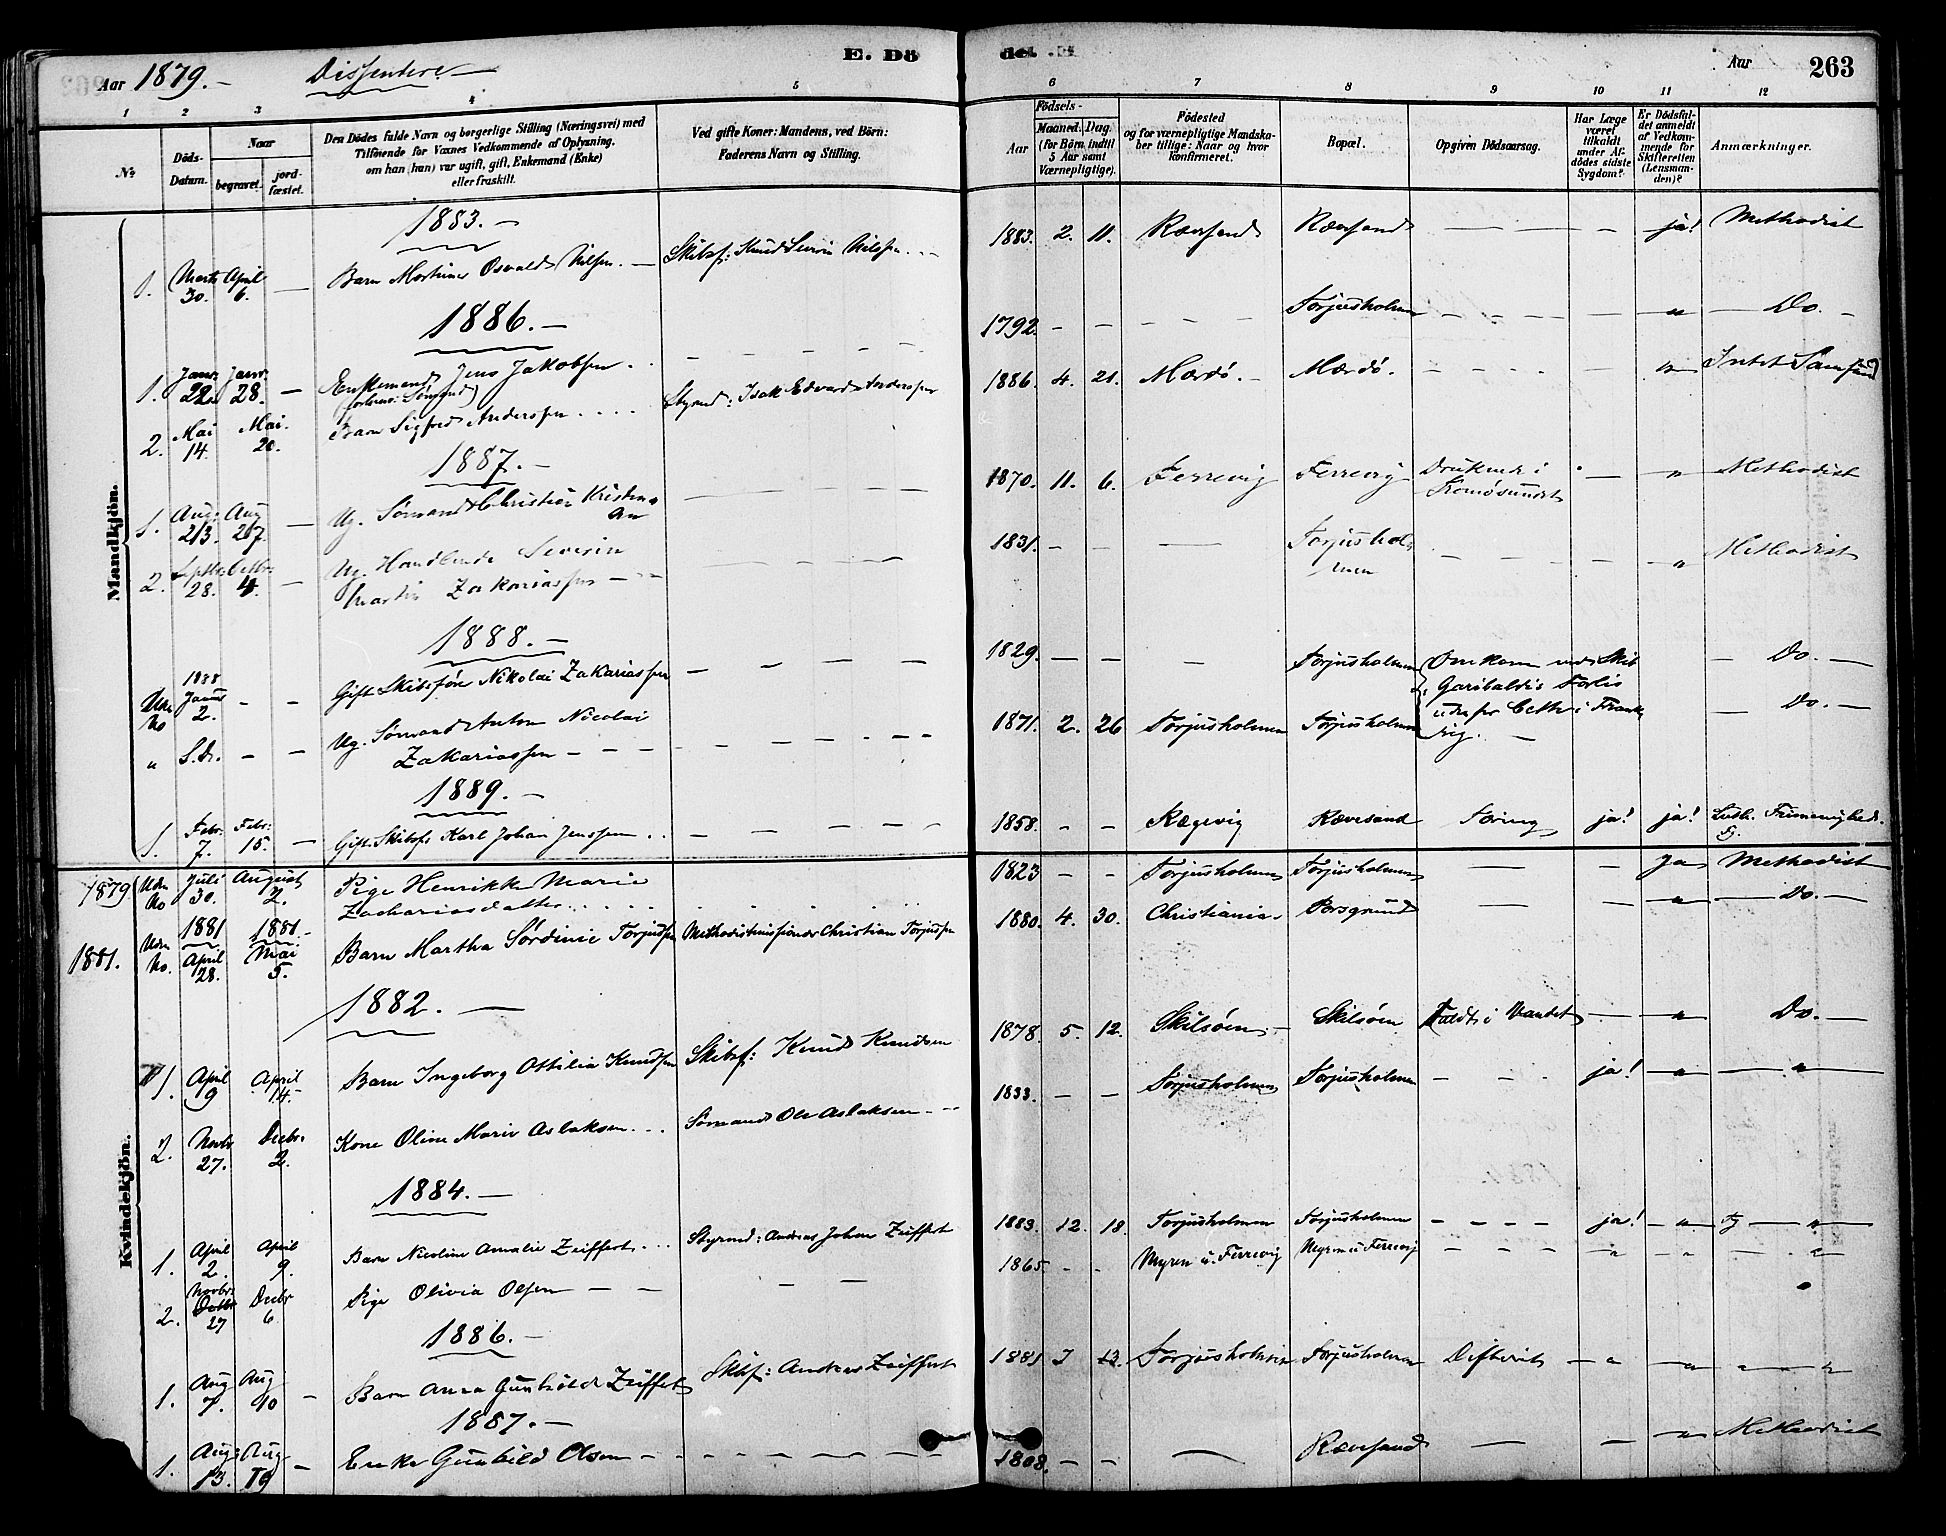 Aar 1879.— Dissentere. E. Dö
1 2 3 4 5
No Döds-Datum. Naar begravet. jordfæstet. Den Dödes fulde Navn og borgerlige Stilling (Næringsvei) med Tilföiende for Voxnes Vedkommende af Oplysning, om han (hun) var ugift, gift, Enkemand (Enke) eller fraskilt. Ved gifte Koner: Mandens, ved Börn: Faderens Navn og Stilling.
Mandkjön.
1883.—
1. Marts 30. April 6. — Barn Mortimer Osvald Nilsen. — Skibsf: Knud Severin Nilsen
1886.—
1. Janr 22. Janr 28. — Enkemand Jens Jakobsen
2. Mai 14. Mai. 20. Barn Sigfred Andersen . . . . Styrmd: Isak Edvard Andersen
1887.—
1. Aug: 23. Aug 27. — Ug. Sömand Christian
2. Septbr. 28. Octbr: 4. — Ug. Handlende Severin
Martin Zakariassen
1888.—
1888
Udn No Janur 2. — — Gift Skibsförer Nikolai Zakariassen
" S.D. — — Ug. Sömand Anton Nicolai
Zakariassen
1889.—
1. Febr. 7. Febr: 15. — Gift Skibsf. Karl Johan Jenssen
Kvindekjön.
1879. Udn No Juli 30. August 2. Pige Henrikke Marie
Zachariasdatter
1881 1881.—
1881. Udn No. April 28. Mai 5. Barn Martha Sördinie Torjussen Methodistmissionær Christian Torjussen
1882.—
1. April 9 April 14. Barn Ingeborg Ottilia Knudsen Skibsf: Knud Knudsen
2. Novbr 27. Decbr. 2. Kone Oline Marie Aslaksen . . . Sömand Ole Aslaksen
1884.—
1. April 2. April 9. Barn Nicoline Amalie Zeiffert . . . Styrmd: Andreas Johan Zeiffert
2. Novbr: 27 Decbr 6 Pige Olivia Olsen — —
1886.—
1. Aug 7. Aug 10 — Barn Anna Gunhild Zeiffert Skibsf: Andreas Zeiffert
1887.—
1. Aug 13. Aug. 19 — Enke Gunhild Olsen
det
Aar 263
6 7 8 9 10 11 12
Födsels- Aar Maaned. Dag. (for Börn indtil 5 Aar samt Værnepligtige). Födested og for værnepligtige Mandskaber tillige: Naar og hvor konfirmeret. Bopæl. Opgiven Dödsaarsag. Har Læge været tilkaldt under Afdödes sidste Sygdom? Er Dödsfaldet anmeldt af Vedkommende for Skifteretten (Lensmanden)? Anmærkninger.
1883. 2. 11. Rævesand Rævesand — — — ja! Methodist
1792. — — — Torjusholmen — — " — Do. —
1886. 4. 21. Mærdö. — Mærdö. — — " Intet Samfund
1870. 11. 6. Ferrevig Ferrevig Druknede i Tromösundet — " Methodist
1831. — — — Torjusholmen — — " Methodist
1829. — — — Torjusholmen Omkom ved Skib
Garibaldis Forlis
udenfor Cette i Frankrig. — — Do. —
1871. 2. 26 Torjusholmen Torjusholmen — Do. —
1858. — — Rægevig Rævesand Tæring ja! ja! Luth. Frimenighed.
1823 — — Torjusholmen Torjusholmen — — Ja Methodist
1880. 4. 30. Christiania Porsgrund — — " — Do. —
1878. 5. 12. Skilsöen — Skilsöen Faldt i Vandet — " Do. —
1833. — — Torjusholmen Torjusholmen — — ja! — " — "
1883. 12. 18. Torjusholmen Torjusholmen — — — — ja! — " — "
1865. — — Myren u. Ferrevig Myren u. Ferrevig — — — — " " "
1881 7 13. Torjusholmen Torjusholmen Difterit — " — " — "
1808. — — — Rævesand — — " Methodist